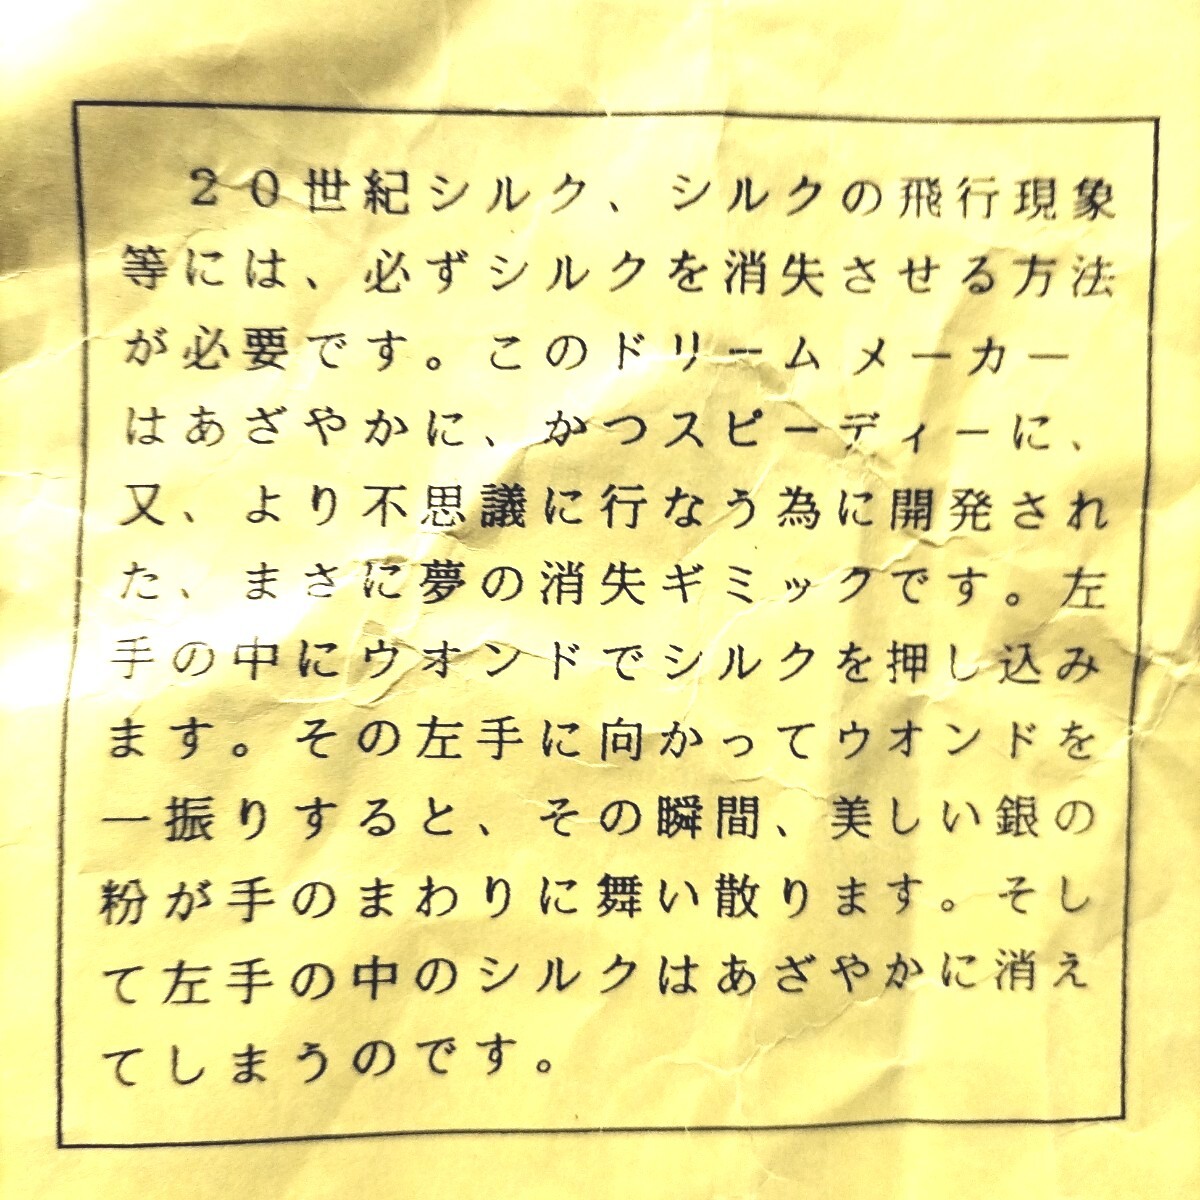 20世紀シルク、シルクの飛行現象
等には、必ずシルクを消失させる方法
が必要です。このドリームメーカー
はあざやかに、かつスピーディーに、
又、より不思議に行なう為に開発され
た、まさに夢の消失ギミックです。左
手の中にウオンドでシルクを押し込み
ます。その左手に向かってウオンドを
一振りすると、その瞬間、美しい銀の
粉が手のまわりに舞い散ります。そし
て左手の中のシルクはあざやかに消え
てしまうのです。